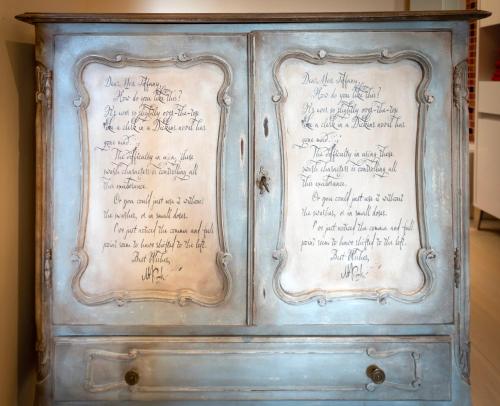 Dear Mrs Tiffany,
How do you like this?
It's worn so slightly over-the-top
like a clerk in a Dickens novel has
gone mad...;
The difficulty in using these
swash characters is controlling all
this exuberance.
Or you could just use it without
the swashes, or in small doses.
I've just noticed the comma and full
point seem to have shifted to the left.
Best Wishes,
Dear Mrs Tiffany,
How do you like this?
It's worn so slightly over-the-top
like a clerk in a Dickens novel has
gone mad...;
The difficulty in using these
swash characters is controlling all
this exuberance.
Or you could just use it without
the swashes, or in small doses.
I've just noticed the comma and full
point seem to have shifted to the left.
Best Wishes,